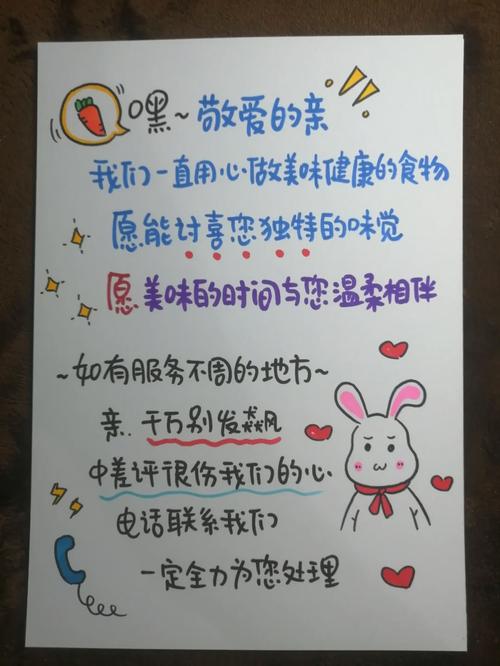 嘿~敬爱的亲
我们一直用心做美味健康的食物
愿能讨喜您独特的味觉
愿美味的时间与您温柔相伴
~如有服务不周的地方~
亲..千万别发飙
中差评很伤我们的心
电话联系我们
一定全力为您处理